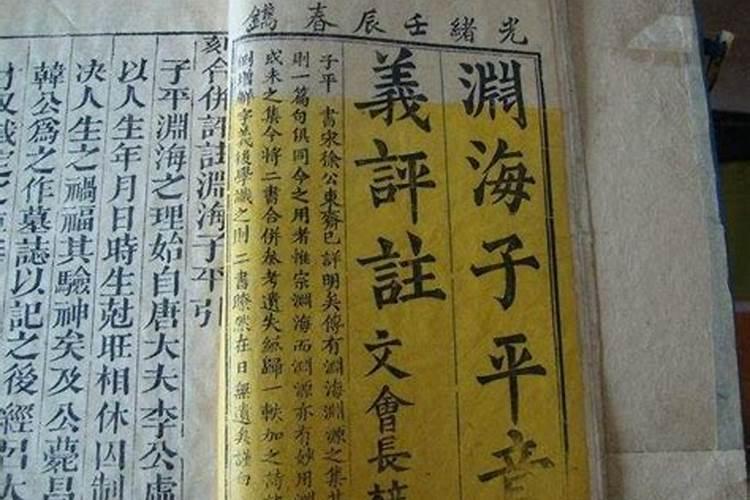 光緒壬辰春鐫
淵海子平音
義評註 文會長
子平 書宋徐公東齋已詳明矣傳有淵海淵源之集其
則一篇句俱同今之用者惟宗淵海而淵源亦有妙用淵
或未之集今將二書合併參考遺失 歸一帙加之詩
增解字義後學識之則二書瞭然在目無遺矣謹白
刻合併評註淵海子平引
子平淵海之理始自唐大夫李公虛
以人生年月日時生尅旺相休囚制
决人生之禍福其驗神矣及公薨昌
韓公爲之作墓誌以記之後經呂大